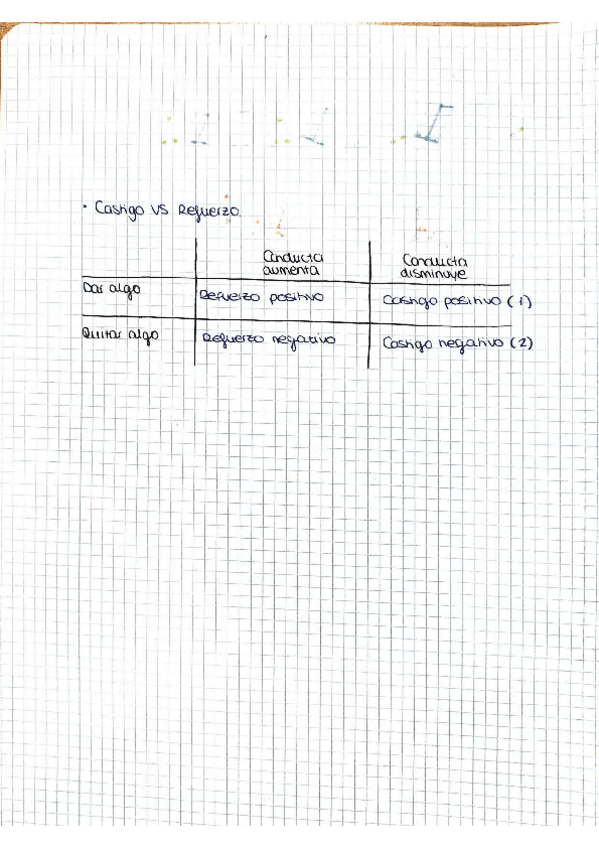 · Castigo VS Refuerzo.
Conducta aumenta | Conducta disminuye
Dar algo | Refuerzo positivo | Castigo positivo (1)
Quitar algo | Refuerzo negativo | Castigo negativo (2)